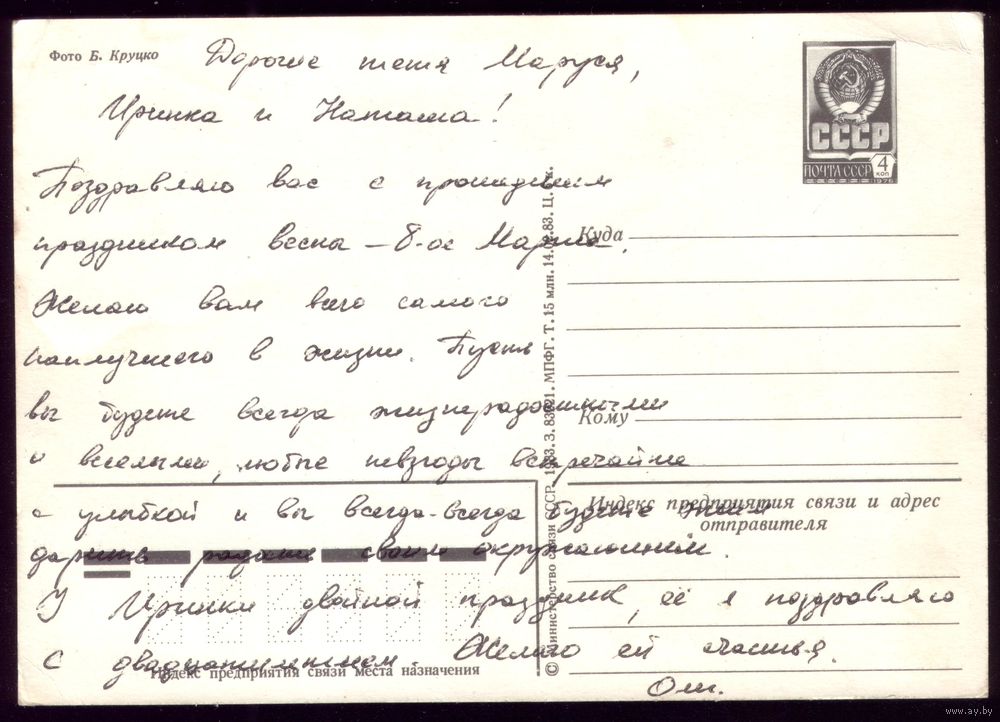 Фото Б. Круцко
Дорогие тетя Маруся,
Иринка и Наташа!
СССР
4 коп
ПОЧТА СССР
1976
Поздравляю вас с прошедшим
праздником весны – 8-ое Марта.
Желаю вам всего самого
наилучшего в жизни. Пусть
вы будете всегда жизнерадостными
и веселыми, любые невзгоды встречайте
с улыбкой и вы всегда-всегда будете
дарить радость своим окружающим.
У Иринки двойной праздник, её я поздравляю
с двадцатилетием. Желаю ей счастья.
Оля.
Куда
Кому
Индекс предприятия связи и адрес
отправителя
Индекс предприятия связи места назначения
© Министерство связи СССР. 1983. З. 83921. МПФГ. Т. 15 млн. 14.04.83. Ц. 5 к.
www.ay.by